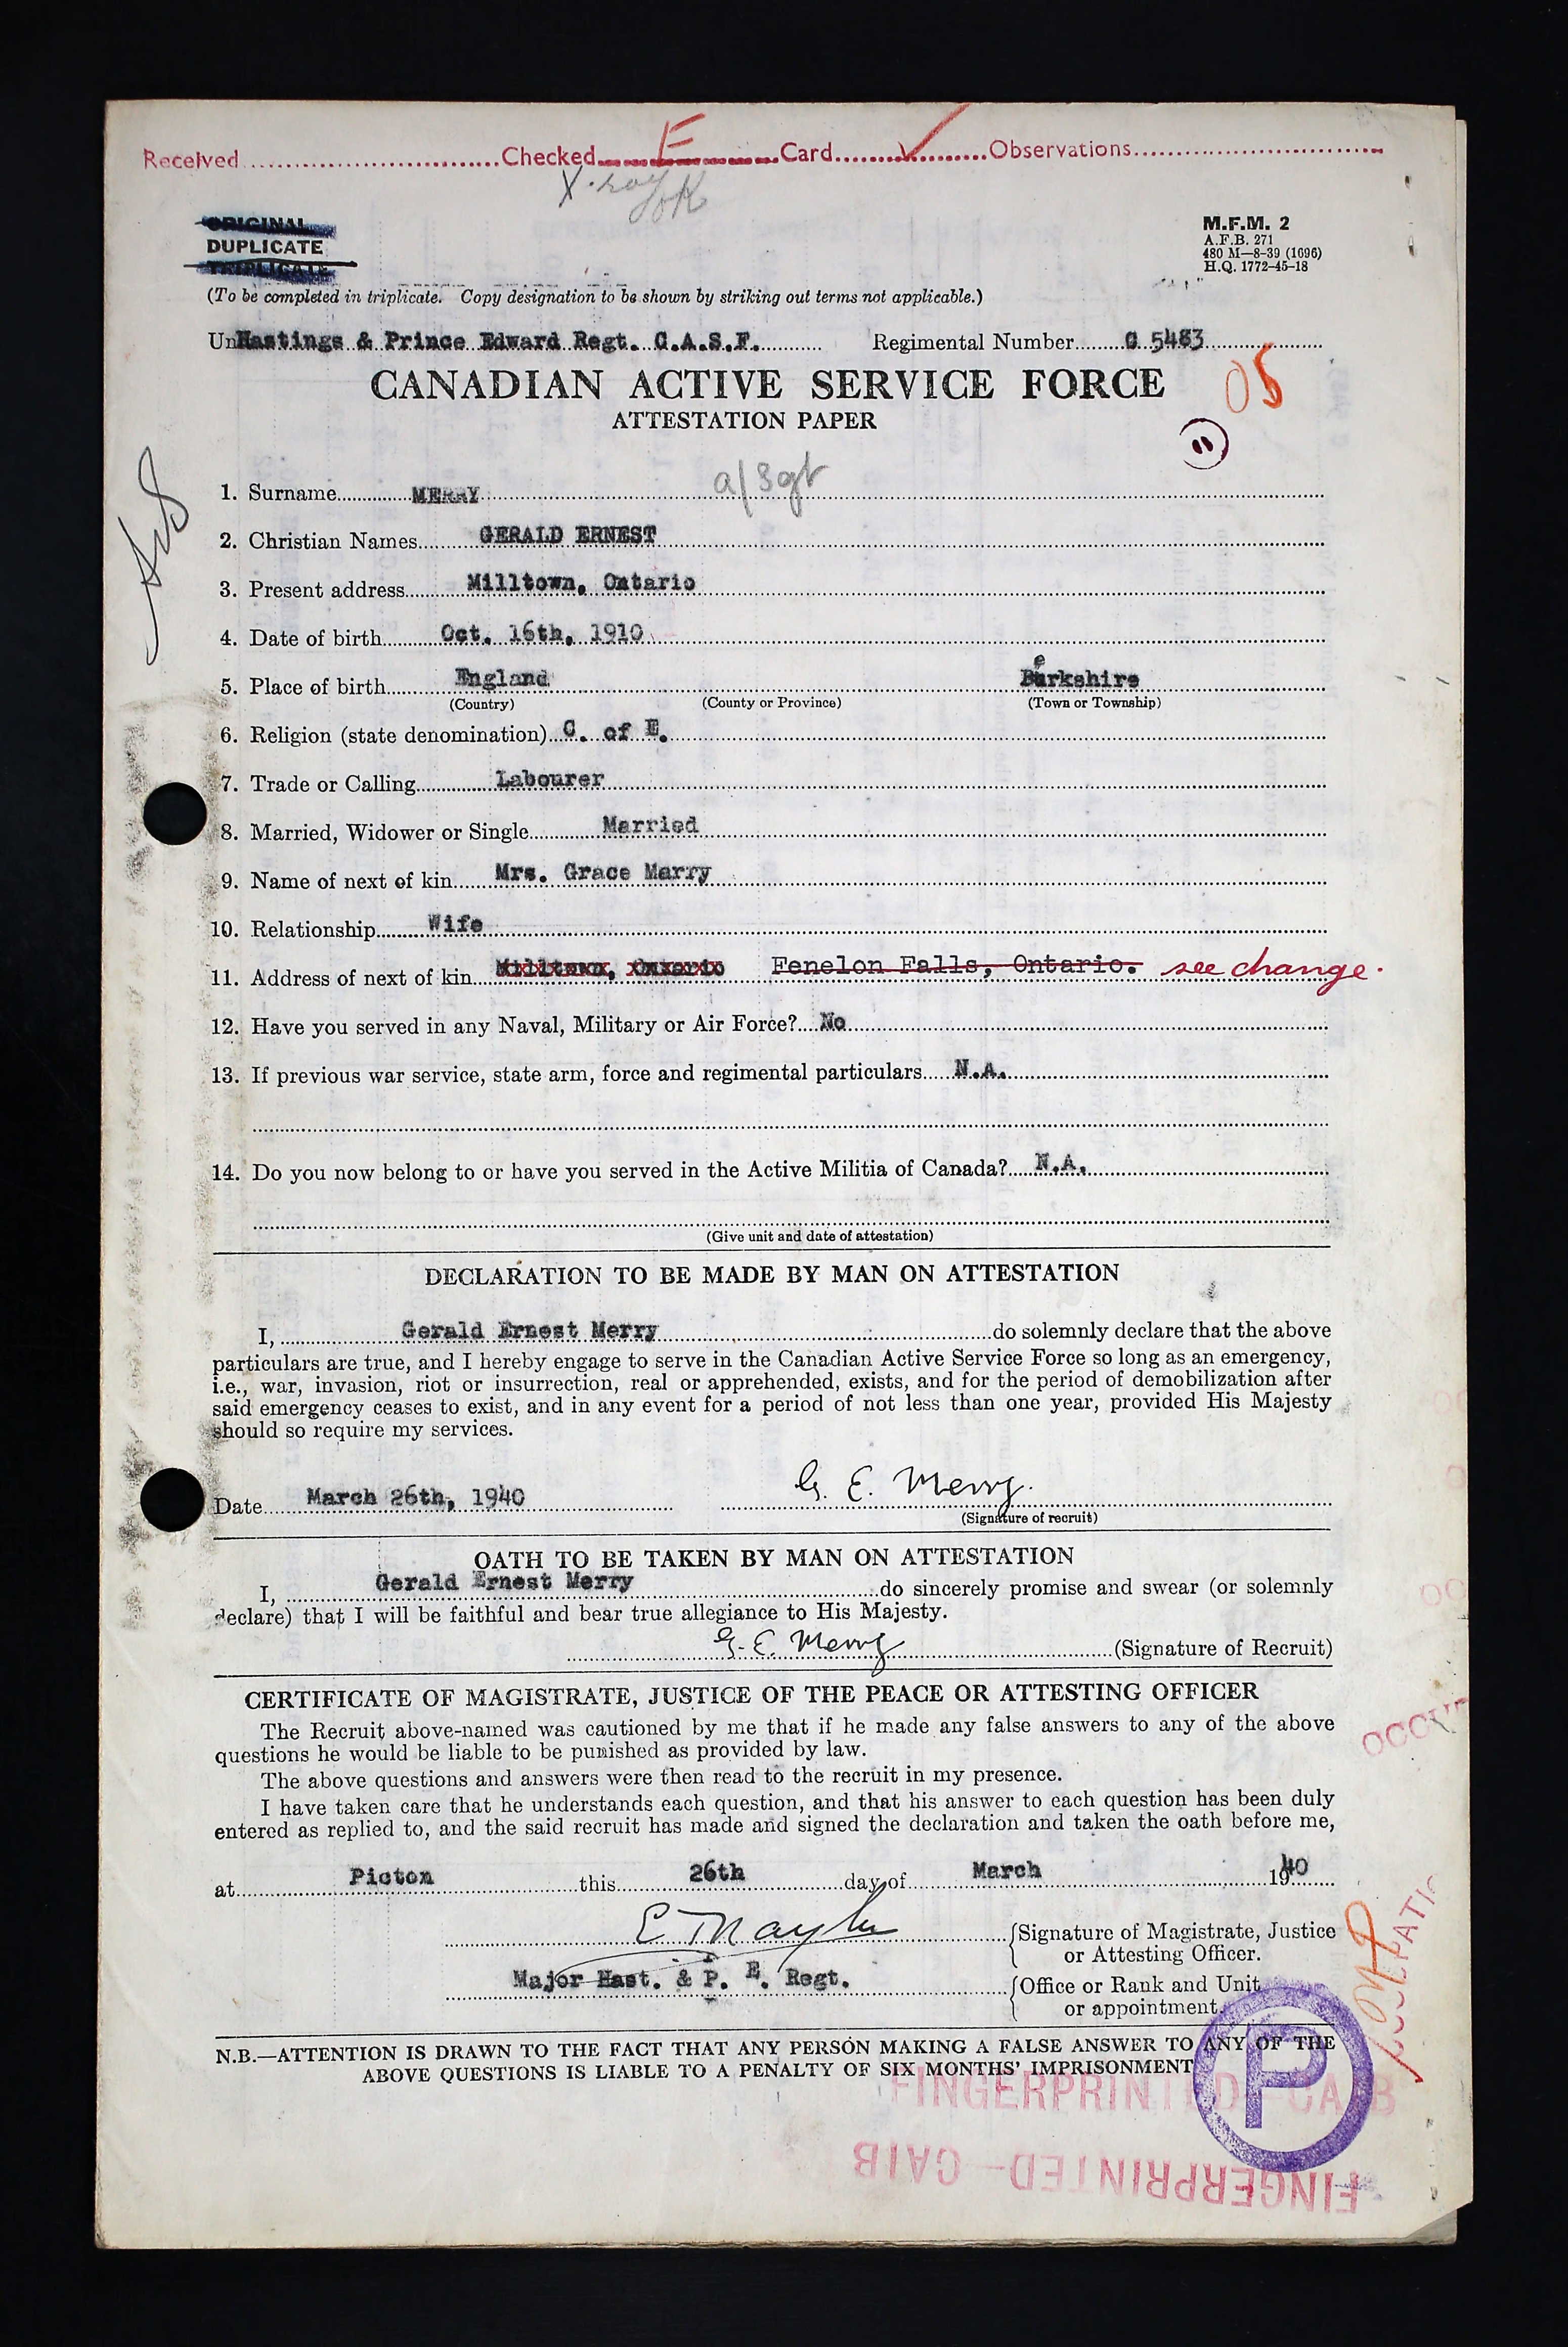 Received..............................Checked....E....Card....✓....Observations..............................
X-ray OK
ORIGINAL
DUPLICATE
TRIPLICATE
M.F.M. 2
A.F.B. 271
480 M—8-39 (1096)
H.Q. 1772-45-18
(To be completed in triplicate. Copy designation to be shown by striking out terms not applicable.)
Un Hastings & Prince Edward Regt. C.A.S.F. Regimental Number C 5483
CANADIAN ACTIVE SERVICE FORCE
ATTESTATION PAPER
a/Sgt
1. Surname MERRY
2. Christian Names GERALD ERNEST
3. Present address Milltown, Ontario
4. Date of birth Oct. 16th, 1910
5. Place of birth England Berkshire
(Country) (County or Province) (Town or Township)
6. Religion (state denomination) C. of E.
7. Trade or Calling Labourer
8. Married, Widower or Single Married
9. Name of next of kin Mrs. Grace Marry
10. Relationship Wife
11. Address of next of kin Milltown, Ontario Fenelon Falls, Ontario. see change.
12. Have you served in any Naval, Military or Air Force? No
13. If previous war service, state arm, force and regimental particulars N.A.
14. Do you now belong to or have you served in the Active Militia of Canada? N.A.
(Give unit and date of attestation)
DECLARATION TO BE MADE BY MAN ON ATTESTATION
I, Gerald Ernest Merry do solemnly declare that the above
particulars are true, and I hereby engage to serve in the Canadian Active Service Force so long as an emergency,
i.e., war, invasion, riot or insurrection, real or apprehended, exists, and for the period of demobilization after
said emergency ceases to exist, and in any event for a period of not less than one year, provided His Majesty
should so require my services.
Date March 26th, 1940 G. E. Merry.
(Signature of recruit)
OATH TO BE TAKEN BY MAN ON ATTESTATION
I, Gerald Ernest Merry do sincerely promise and swear (or solemnly
declare) that I will be faithful and bear true allegiance to His Majesty.
G. E. Merry (Signature of Recruit)
CERTIFICATE OF MAGISTRATE, JUSTICE OF THE PEACE OR ATTESTING OFFICER
The Recruit above-named was cautioned by me that if he made any false answers to any of the above
questions he would be liable to be punished as provided by law.
The above questions and answers were then read to the recruit in my presence.
I have taken care that he understands each question, and that his answer to each question has been duly
entered as replied to, and the said recruit has made and signed the declaration and taken the oath before me,
at Picton this 26th day of March 1940
Signature of Magistrate, Justice
or Attesting Officer.
Major Hast. & P. E. Regt. Office or Rank and Unit
or appointment.
N.B.—ATTENTION IS DRAWN TO THE FACT THAT ANY PERSON MAKING A FALSE ANSWER TO ANY OF THE
ABOVE QUESTIONS IS LIABLE TO A PENALTY OF SIX MONTHS' IMPRISONMENT
P
FINGERPRINTED - CAIB
FINGERPRINTED - CAIB